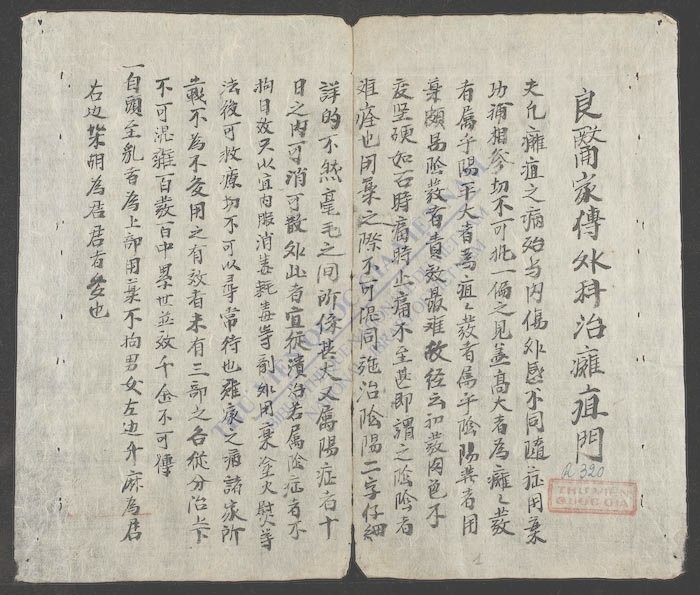 良醫家傳外科治癰疽門
夫凡癰疽之病始与内傷外感不同隨症用藥
功補相參切不可執一偏之見盖高大者為癰癰發
者属乎陽平大者為疽疽發者属乎陰陽症者用
藥頗易陰發者責效最难故經云初發肉色不
变坚硬如石時痛時止痛不至甚即謂之陰陰者
难痊也用藥之際不可混同施治陰陽二字仔細
詳的不然毫毛之间所係甚大又属陽症者十
日之内可消可散外此者宜従潰治若属陰症者不
拘日数只以宜内服消毒敗毒等剤外用藥塗火熨等
法後可救療切不可以尋常待也癰疽之病諸家所
載不為不多用之有效者未有三部之各從分治上下
不可混雜百發百中累世並效千金不可傳
一自頭至乳者為上部用藥不拘男女左边升麻為君
右边柴胡為君君者多也
R 320
THƯ VIỆN
QUỐC GIA
1